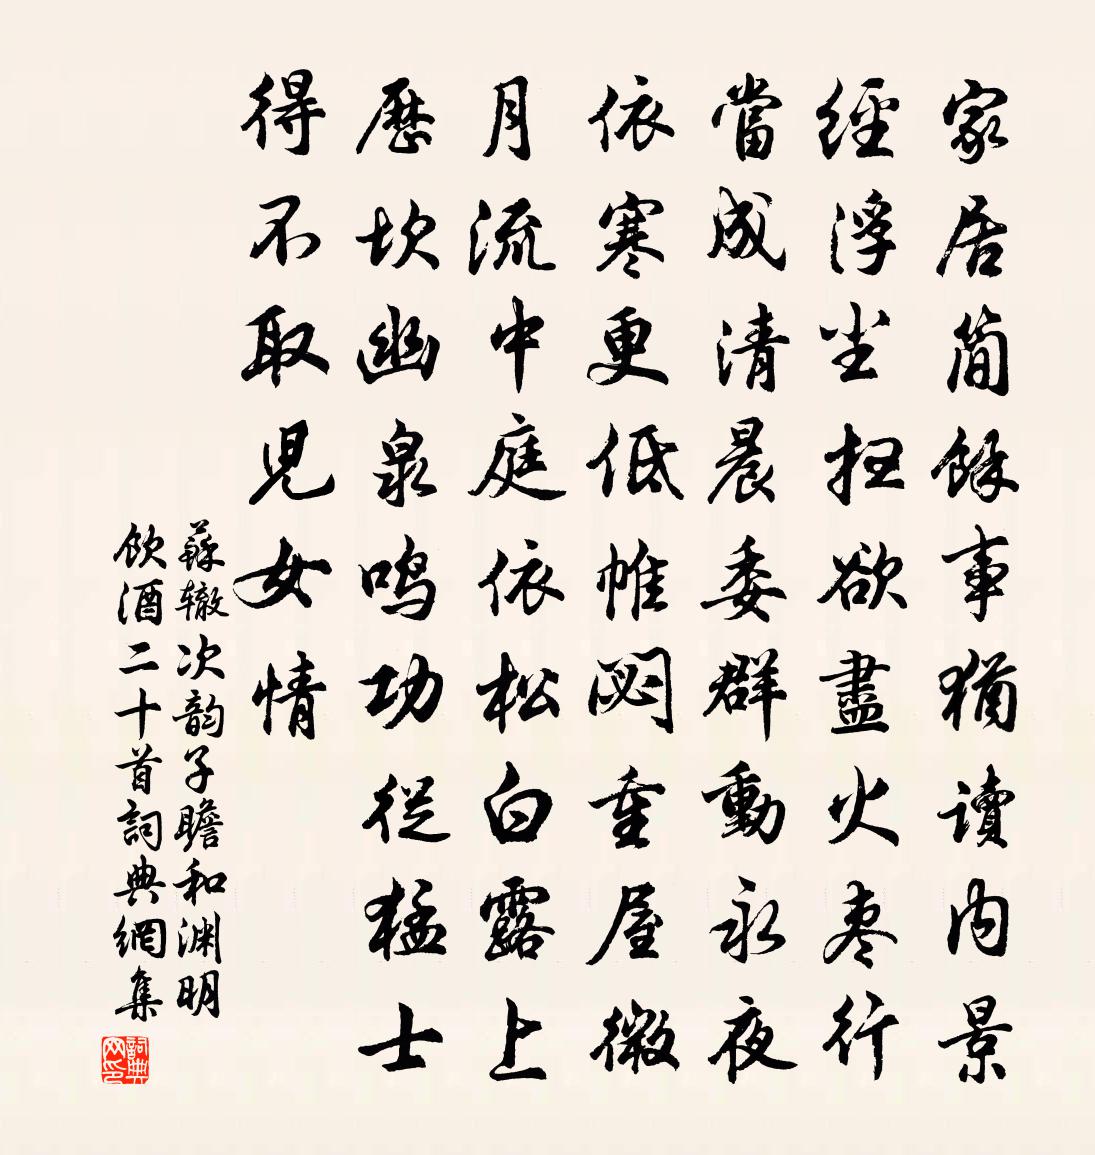 家居簡餘事猶讀内景
經浮尘扫欲盡火枣行
當成清晨委群動永夜
依寒更低帷閟重屋微
月流中庭依松白露上
歷坎幽泉鳴功從猛士
得不取児女情
蘇辙次韵子瞻和渊明
飲酒二十首詞典網集
詞典网印